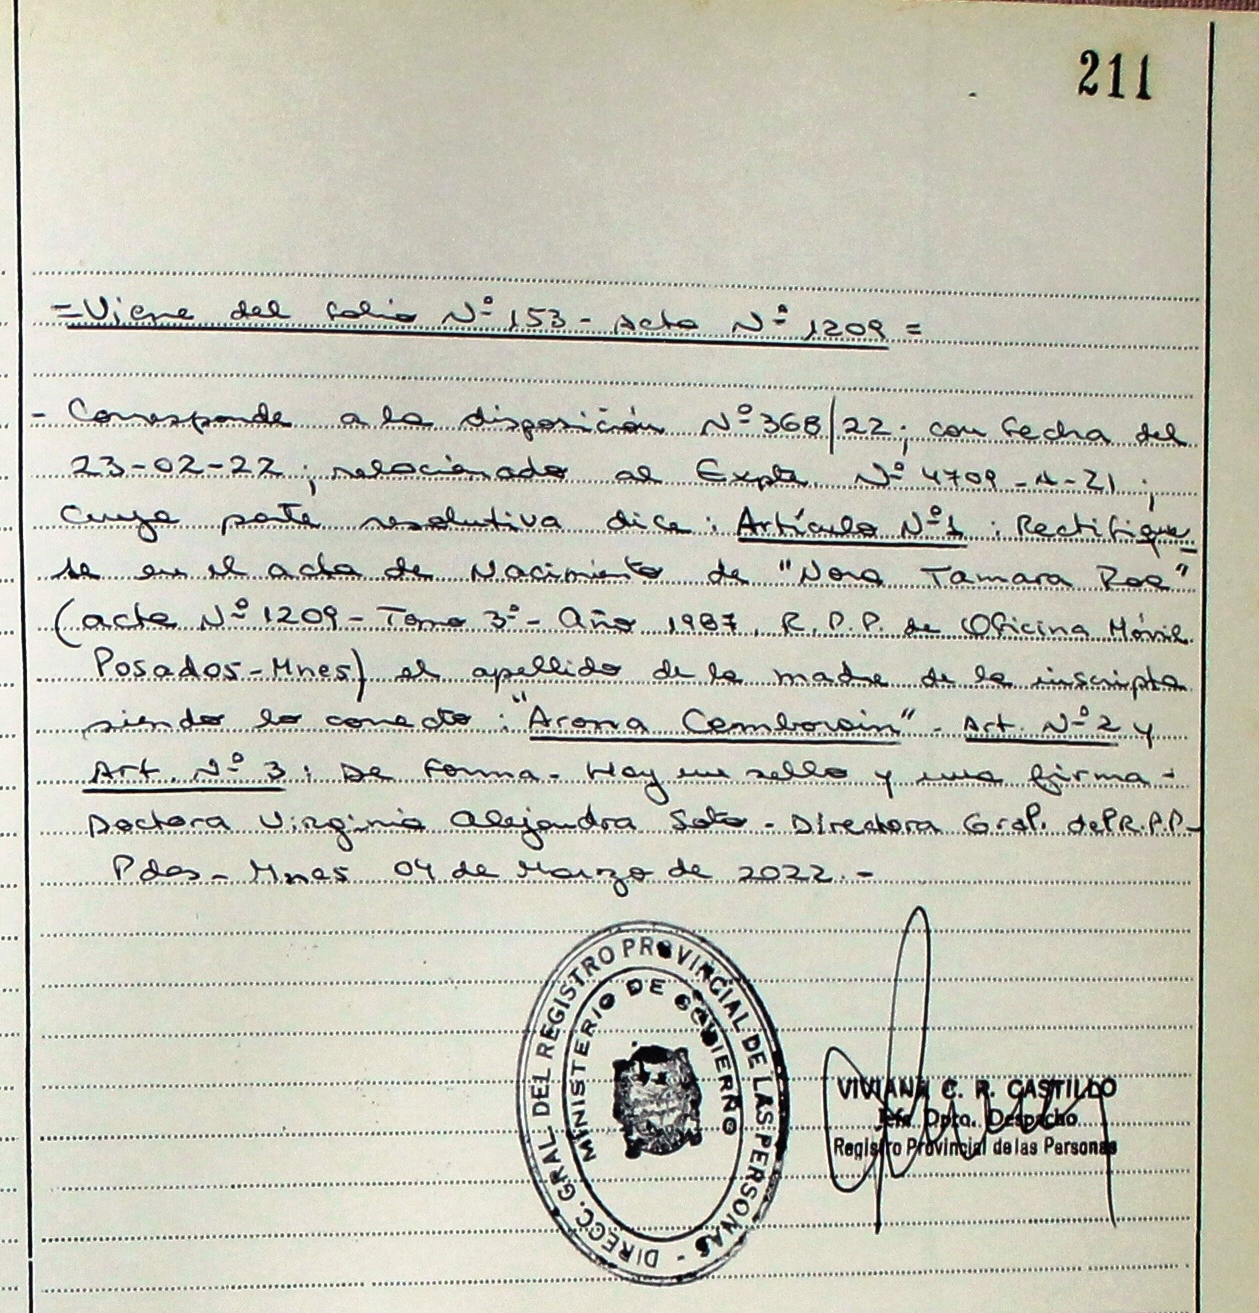 211
=Viene del folio Nº 153 - Acta Nº 1209 =
- Corresponde a la disposición Nº 368/22; con fecha del
23-02-22; relacionado al Expte. Nº 4709 - A-21;
cuya parte resolutiva dice: Artículo Nº1: Rectifique
se en el acta de Nacimiento de "Nora Tamara Roa"
(acta Nº 1209 - Tomo 3º - Año 1987. R.P.P. de Oficina Móvil
Posadas-Mnes) el apellido de la madre de la inscripta
siendo lo correcto: "Arona Cemborain". Art. Nº 2 y
Art. Nº 3: De forma. Hay un sello y una firma -
Doctora Virginia Alejandra Soto - Directora Gral. del R.P.P-
Pdas - Mnes 04 de Marzo de 2022.-
DIRECC. GRAL. DEL REGISTRO PROVINCIAL DE LAS PERSONAS -
MINISTERIO DE GOBIERNO
VIVIANA C. R. CASTILLO
Jefa Dpto. Despacho
Registro Provincial de las Personas